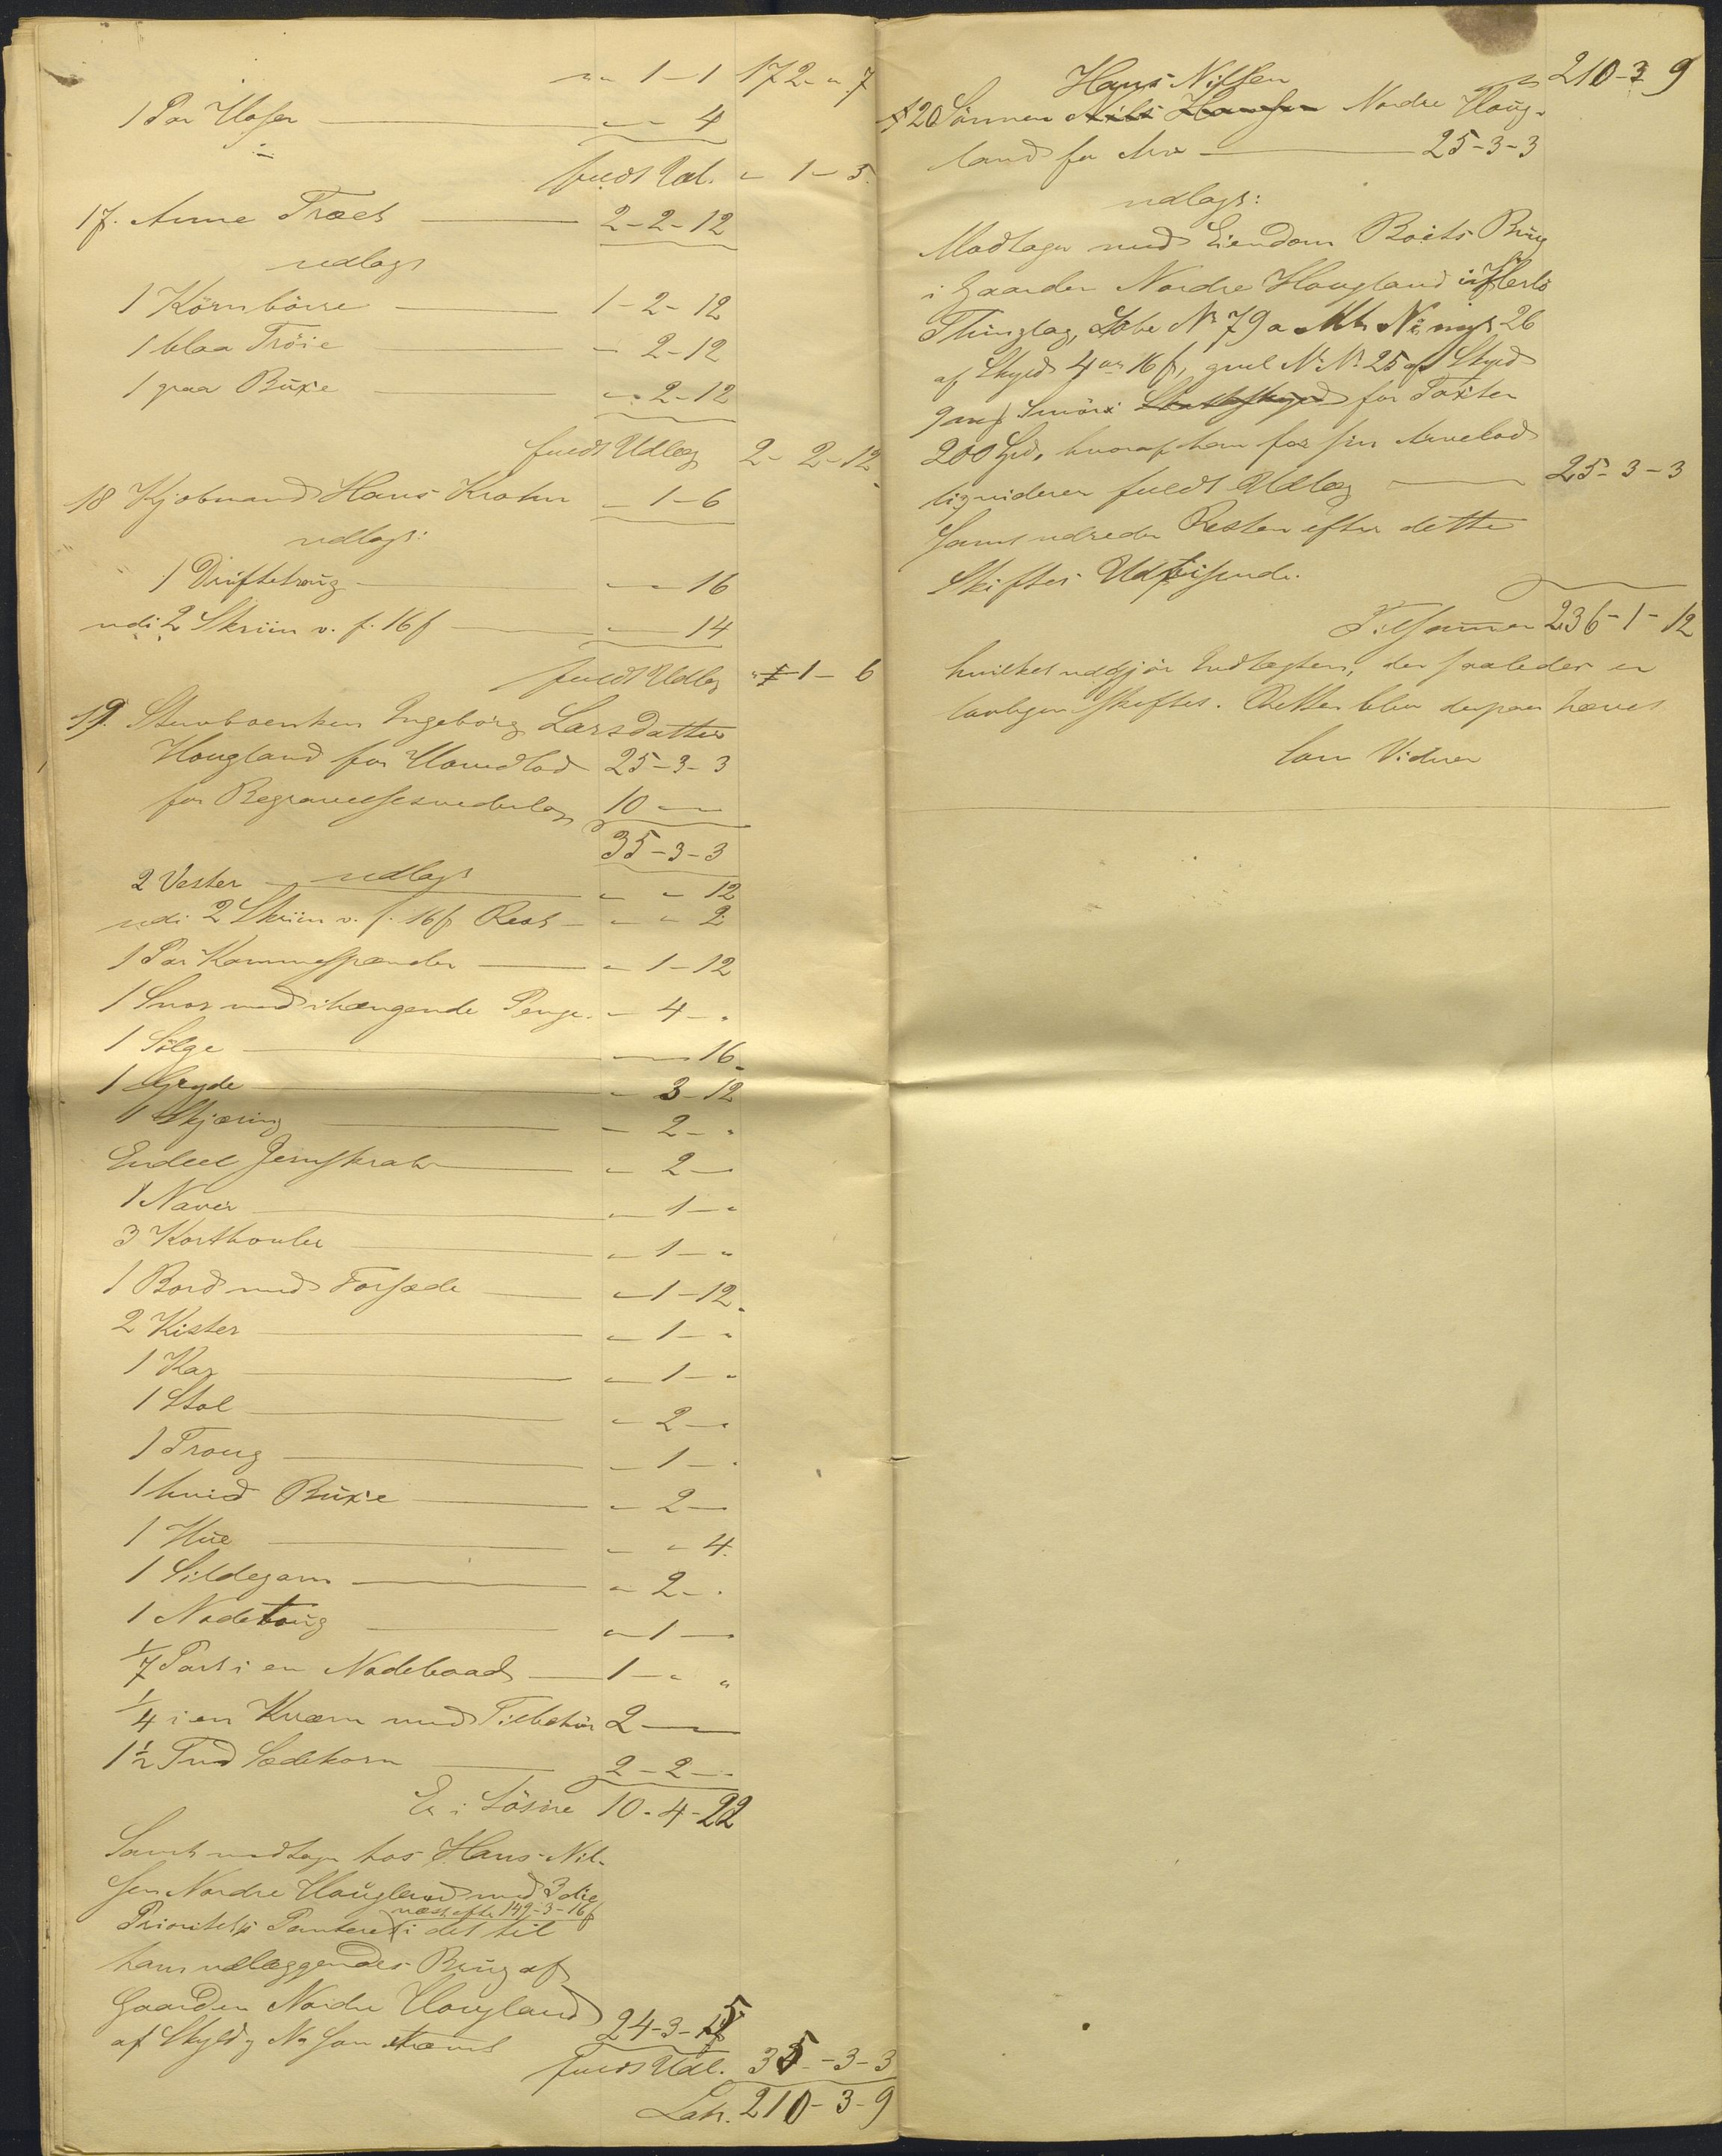 " " 1-1 172- " 7
1 Par Hoser " - 4
fuldt Udl. " 1-5.
17. Anne Træet 2-2-12
udlagt
1 Körnbörre 1-2-12
1 blaa Tröie - 2-12
1 graa Büxe " 2-12
fuldt Udlæg 2-2-12
18 Kjøbmand Hans Krohn - 1-6
udlagt:
1 Driftetroüg - 16
udi 2 Skriin v. f. 16 f 14
fuldt Udlæg " 1-6
19. Stervboenken Ingeborg Larsdatter
Hougland for Hovedlod 25-3-3
for Begravelsesvederlag 10 - "
35-3-3
udlagt
2 Vester " - 12
udi 2 Skriin v. f. 16 f Rest " " 2
1 Par Kammespænder " 1-12
1 Snor med ihængende Penge " 4- "
1 Sölge 16
1 Gryde " 3-12
1 Skjæring - 2- "
Endeel Jernskrab " 2-
1 Naver " 1- "
3 Korthouler " 1- "
1 Bord med Forsæde " 1-12
2 Kister " 1- "
1 Kar " 1- "
1 Stol " 2- "
1 Troug - 1- "
1 hvid Büxe " 2-
1 Hüe - " 4.
1 Sildegarn " 2- .
1 Nodetoüg " 1-
1/7 Part i en Nodebaad 1- " "
1/4 i en Kværn med Tilbehör 2 -
1 1/2 Tnd Sædekorn 2-2-
Er i Lösöre 10-4-22
Samt modtager hos Hans Nil-
sen Nordre Haügland med 3die
næst efter 149-3-16 f
Prioritets Panteret i det til
ham udlæggendes Brüg af
Gaarden Nordre Hougland
af Skyld og No som nævnt 24-3-5
fuldt Udl. 35-3-3
Lats. 210-3-9
Hans Nilsen 210-3 9
20 Sönnen Nils Hansen Nordre Haüg-
land for Arv 25-3-3
udlagt:
Modtager med Eiendom Boets Brüg
i Gaarden Nordre Hougland i Herlö
Thinglag, Löbe No 79 a Mts No nyt 26
af Skyld 4 ort 16 f, gml No No 25 af Skyld
Smör Skatteskyld for Taxten
200 Spd, hvoraf han for sin Arvelod
liqviderer fuldt Udlæg 25-3-3
samt udreder Resten efter dette
Skiftes Udvisende.
Tilsammen 236-1-12
hvilket udgjör Indtægten, der saaledes er
lovligen skiftet. Retten blev derpaa hævet
Con Vidner